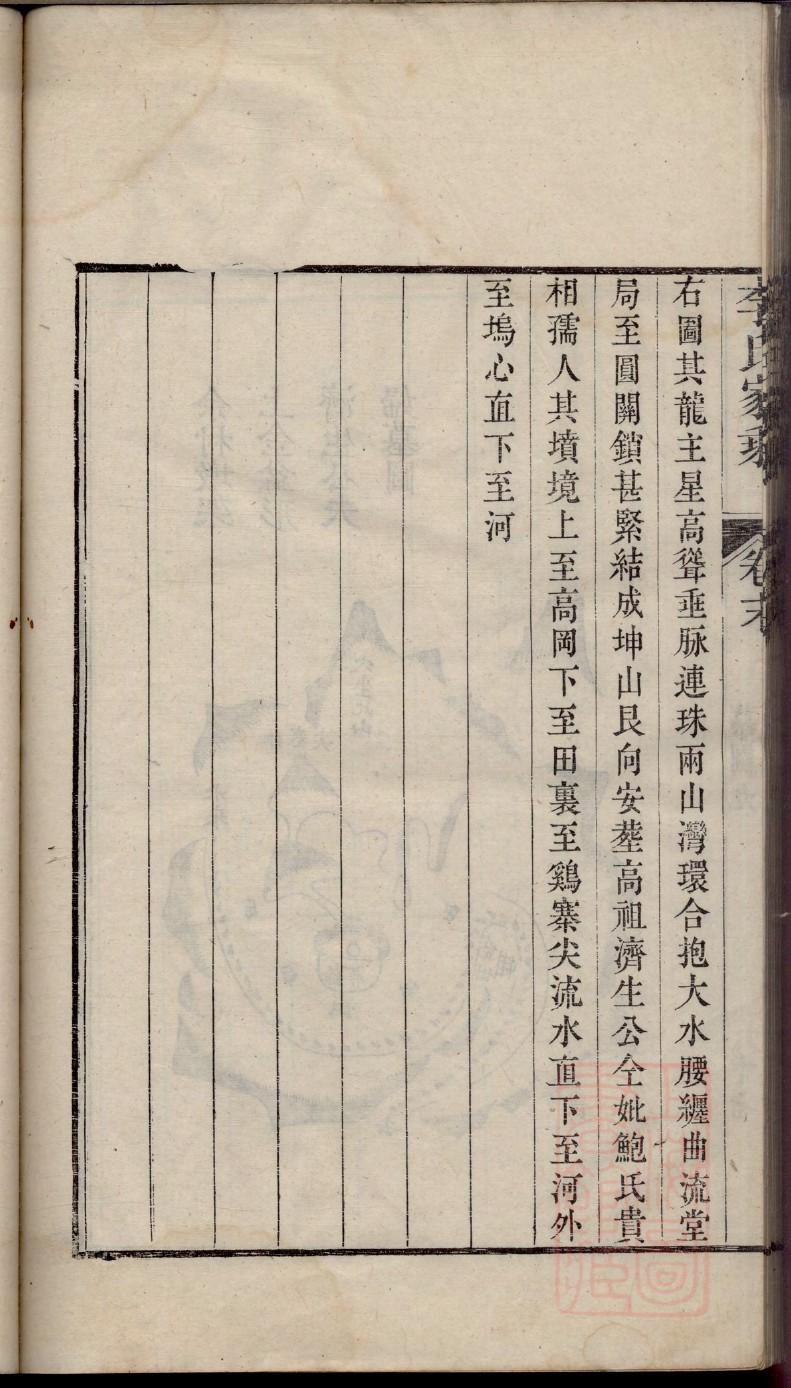 李氏家乘 卷末
右圖其龍主星高聳垂脉連珠兩山灣環合抱大水腰纏曲流堂
局至圓關鎖甚緊結成坤山艮向安塟高祖濟生公仝妣鮑氏貴
相孺人其墳境上至高岡下至田裏至鷄寨尖流水直下至河外
至塢心直下至河